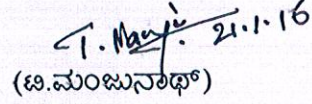 T. Manju 21.1.16
(ಟಿ.ಮಂಜುನಾಥ್)